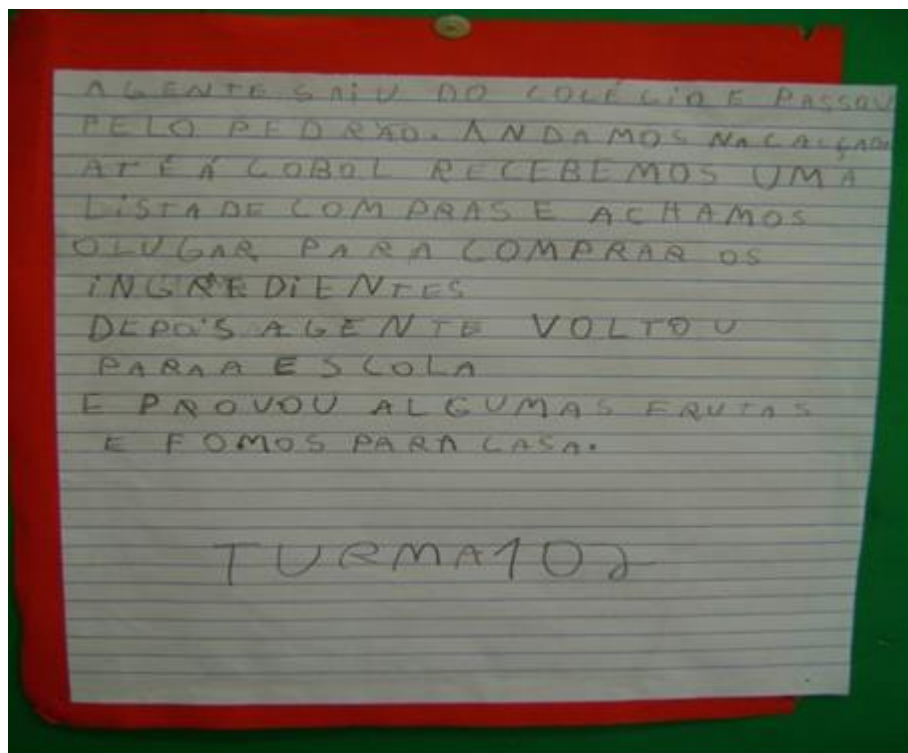 AGENTE SAiU DO COLÉGiO E PASSOU
PELO PEDRÃO. ANDAMOS NA CALÇADA
ATÉ Á COBOL RECEBEMOS UMA
LiSTA DE COMPRAS E ACHAMOS
OLUGAR PARA COMPRAR OS
iNGREDiENTES
DEPOiS AGENTE VOLTOU
PARA A ESCOLA
E PROVOU ALGUMAS FRUTAS
E FOMOS PARA CASA.
TURMA 102